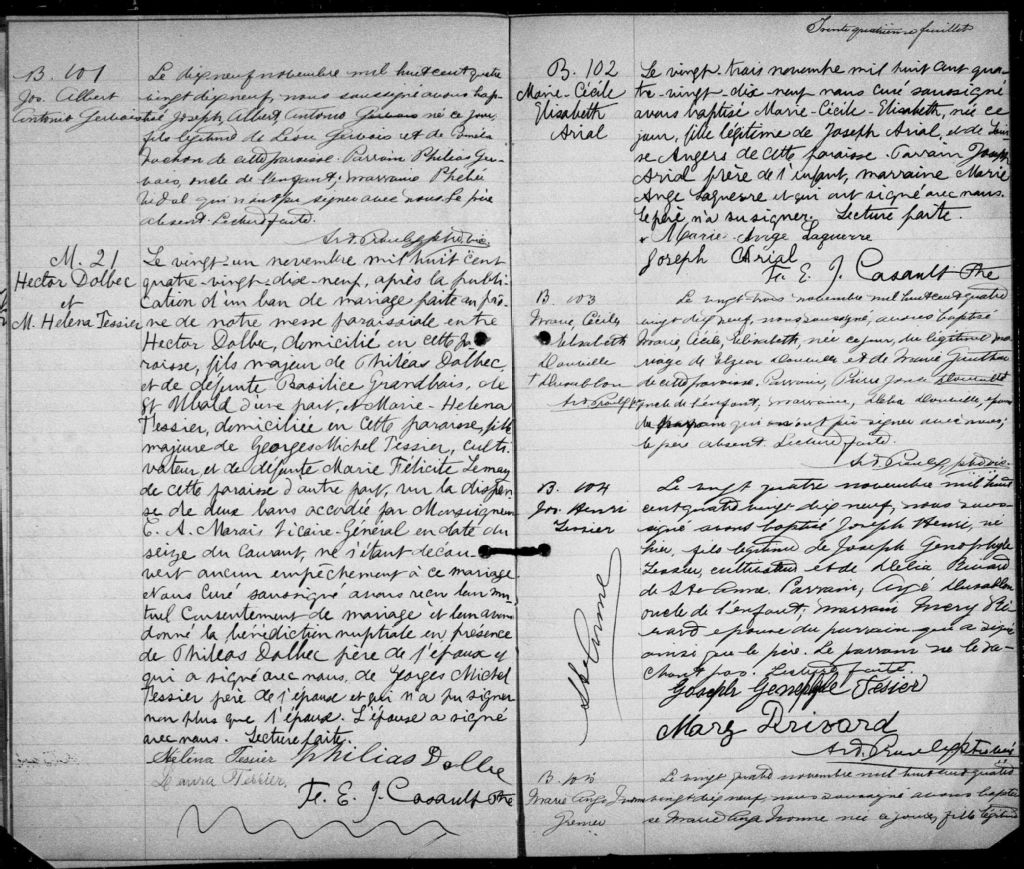 B. 101
Jos. Albert
Antonio Gervais
Le dix neuf novembre mil huit cent quatre
vingt dix neuf, nous soussigné avons bap-
tisé Joseph Albert Antonio Gervais né ce jour,
fils légitime de Léon Gervais et de
Rochon de cette paroisse. Parrain Philias Ger-
vais, oncle de l'enfant; marraine
qui n'ont pu signer avec nous. Le père
absent. Lecture faite.
M. 21
Hector Dolbec
et
M. Helena Tessier
Le vingt-un novembre mil huit cent
quatre-vingt-dix-neuf, après la publi-
cation d'un ban de mariage faite au prô-
ne de notre messe paroissiale entre
Hector Dolbec, domicilié en cette pa
roisse, fils majeur de Philéas Dolbec
et de défunte Basilice Grandbois, de
St Ubald d'une part, et Marie-Helena
Tessier, domiciliée en cette paroisse, fille
majeure de Georges Michel Tessier, culti-
vateur, et de défunte Marie Félicité Lemay
de cette paroisse d'autre part, vu la dispen
se de deux bans accordée par Monseigneur
C. A. Marois Vicaire-Général en date du
seize du courant, ne s'étant décou-
vert aucun empêchement à ce mariage
Nous Curé soussigné avons reçu leur mu-
tuel consentement de mariage et leur avons
donné la bénédiction nuptiale en présence
de Philéas Dolbec père de l'époux
qui a signé avec nous, de Georges Michel
Tessier père de l'épouse et qui n'a pu signer
non plus que l'époux. L'épouse a signé
avec nous. Lecture faite.
Helina Tessier Philias Dolbec
Laura Tessier
Fr. E. J. Casault Ptre
Trente quatrième feuillet
B. 102
Marie-Cécile
Elisabeth
Arial
Le vingt-trois novembre mil huit cent qua-
tre-vingt-dix-neuf nous curé soussigné
avons baptisé Marie-Cécile-Elisabeth, née ce
jour, fille légitime de Joseph Arial, et de Loui
se Angers de cette paroisse. Parrain Joseph
Arial frère de l'enfant, marraine Marie
Ange Laguerre et qui ont signé avec nous.
Le père n'a su signer. Lecture faite.
Marie-Ange Laguerre
Joseph Arial
Fr. E. J. Casault Ptre
B. 103
Marie, Cécile
Elisabeth
Douville
Le vingt trois novembre mil huit cent quatre
vingt dix neuf, nous soussigné, avons baptisé
Marie, Cécile, Elisabeth, née ce jour, du légitime ma
riage de Elzear Douville et de Marie
de cette paroisse. Parrain, Pierre
oncle de l'enfant; marraine, Douville, épouse
du parrain qui n'ont pu signer avec nous;
le père absent. Lecture faite.
B. 104
Jos. Henri
Tessier
Ste Anne
Le vingt quatre novembre mil huit
cent quatre vingt dix neuf, nous sous-
signé avons baptisé Joseph Henri, né
hier, fils légitime de Joseph
Tessier, cultivateur et de Delia Rivard
de Ste Anne. Parrain,
oncle de l'enfant; marraine Mery Ri-
vard épouse du parrain qui a signé
ainsi que le père. Le parrain ne le sa-
chant pas. Lecture faite
Joseph Tesier
Mary Drivard
B. 105
Marie Ange Ivonne
Grenier
Le vingt quatre novembre mil huit cent quatre
vingt dix neuf, nous soussigné avons bapti
sé Marie Ange Ivonne née ce jour, fille légitime